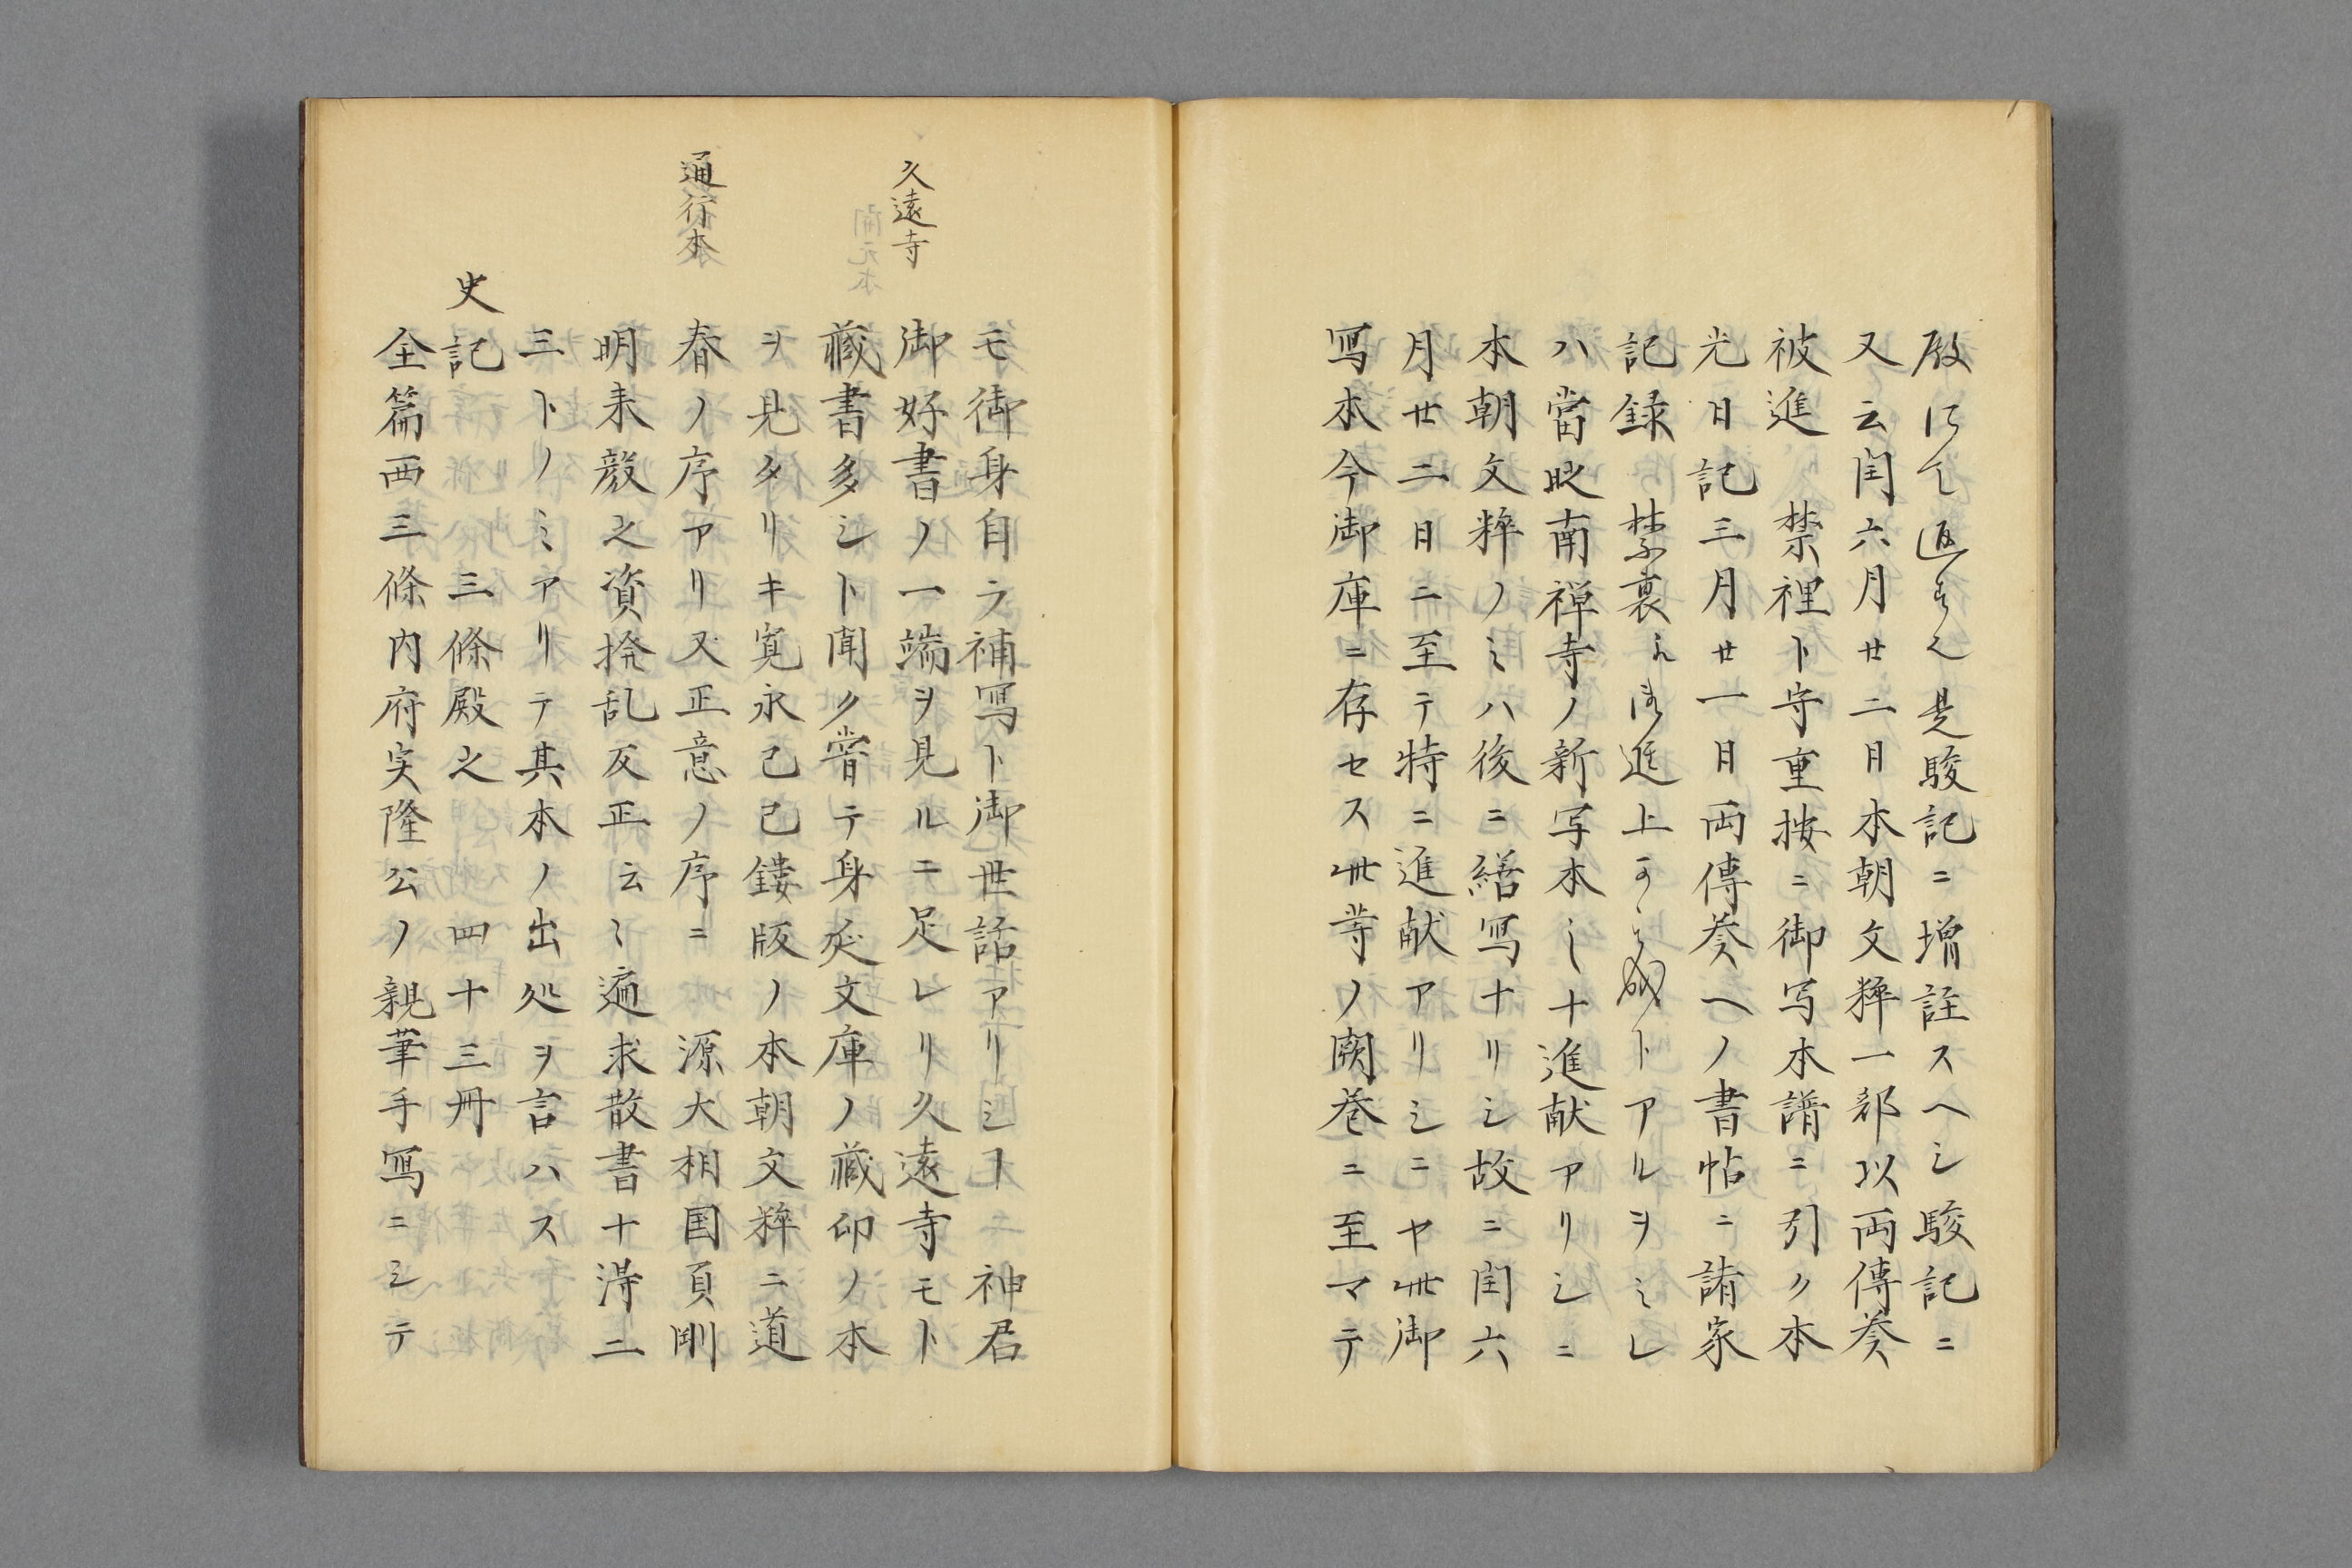 殿にて返すへ是駿記ニ増註スヘシ駿記ニ
又云閏六月廿二日本朝文粹一部以両傳奏
被進　禁裡ト守重按ニ御写本譜ニ引ク本
光日記三月廿一日両傳奏ヘノ書帖ニ諸家
記録　禁裏え御進上可ヽ成トアルヲミレ
ハ當时南禅寺ノ新写本シ十進献アリシニ
本朝文粹ノミハ後ニ繕写ナリシ故ニ閏六
月廿二日ニ至テ特ニ進献アリシニヤ丗御
写本今御庫ニ存セス丗等ノ闕巻ニ至マテ
モ御身自ラ補写ト御世話アリシヿニ神君
久遠寺
御好書ノ一端ヲ見ルニ足レリ久遠寺モト
藏書多シト聞ク甞テ身延文庫ノ藏印ノ本
ヲ見タリキ寛永己巳鏤版ノ本朝文粹ニ道
通行本
春ノ序アリ又正意ノ序ニ　源大相国貞剛
明耒敎之資撥乱反正云〻遍求散書十淂二
三トノミアリテ其本ノ出処ヲ言ハス
史記　三條殿之　四十三冊
全篇西三條内府実隆公ノ親筆手写ニシテ